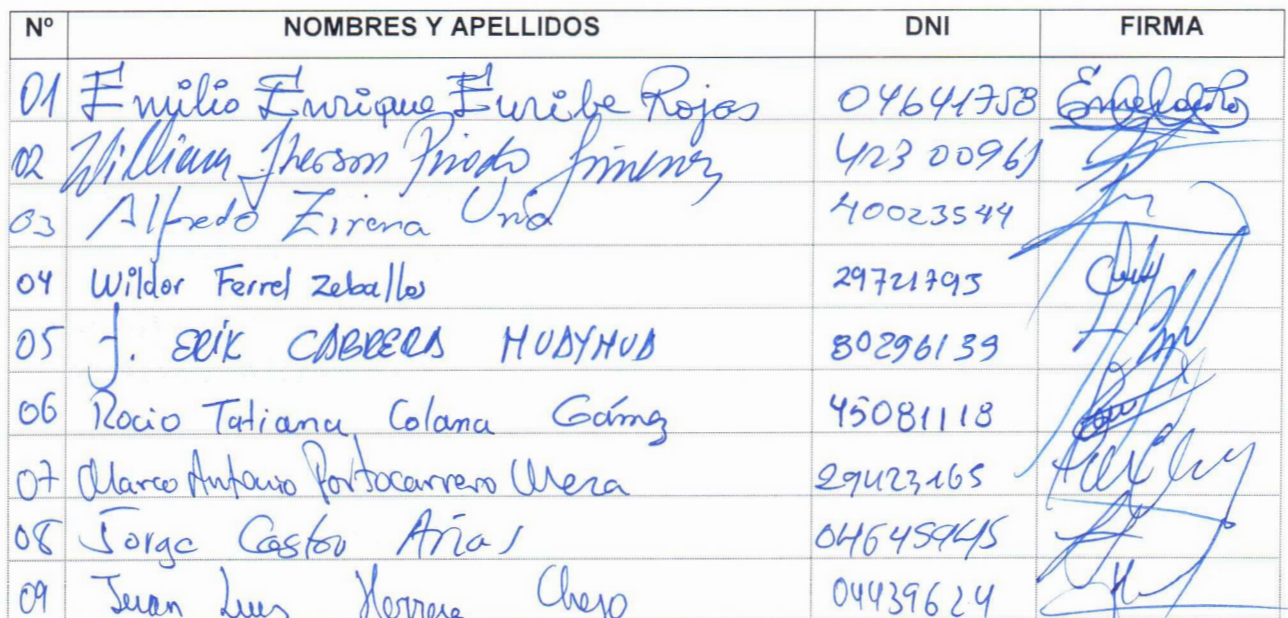 Nº NOMBRES Y APELLIDOS DNI FIRMA
01 Emilio Enrique Euribe Rojas 04641758
02 William Jherson Jimenez 42300961
03 Alfredo Zirena 40023544
04 Wilder Ferrel Zeballos 29721795
05 J. ERIK CABRERA HUAYHUA 80296139
06 Rocio Tatiana Colana Gámez 45081118
07 Marco Antonio Portocarrero Meza 29423165
08 Jorge Castor Arias
09 Juan Luis Herrera 04439624